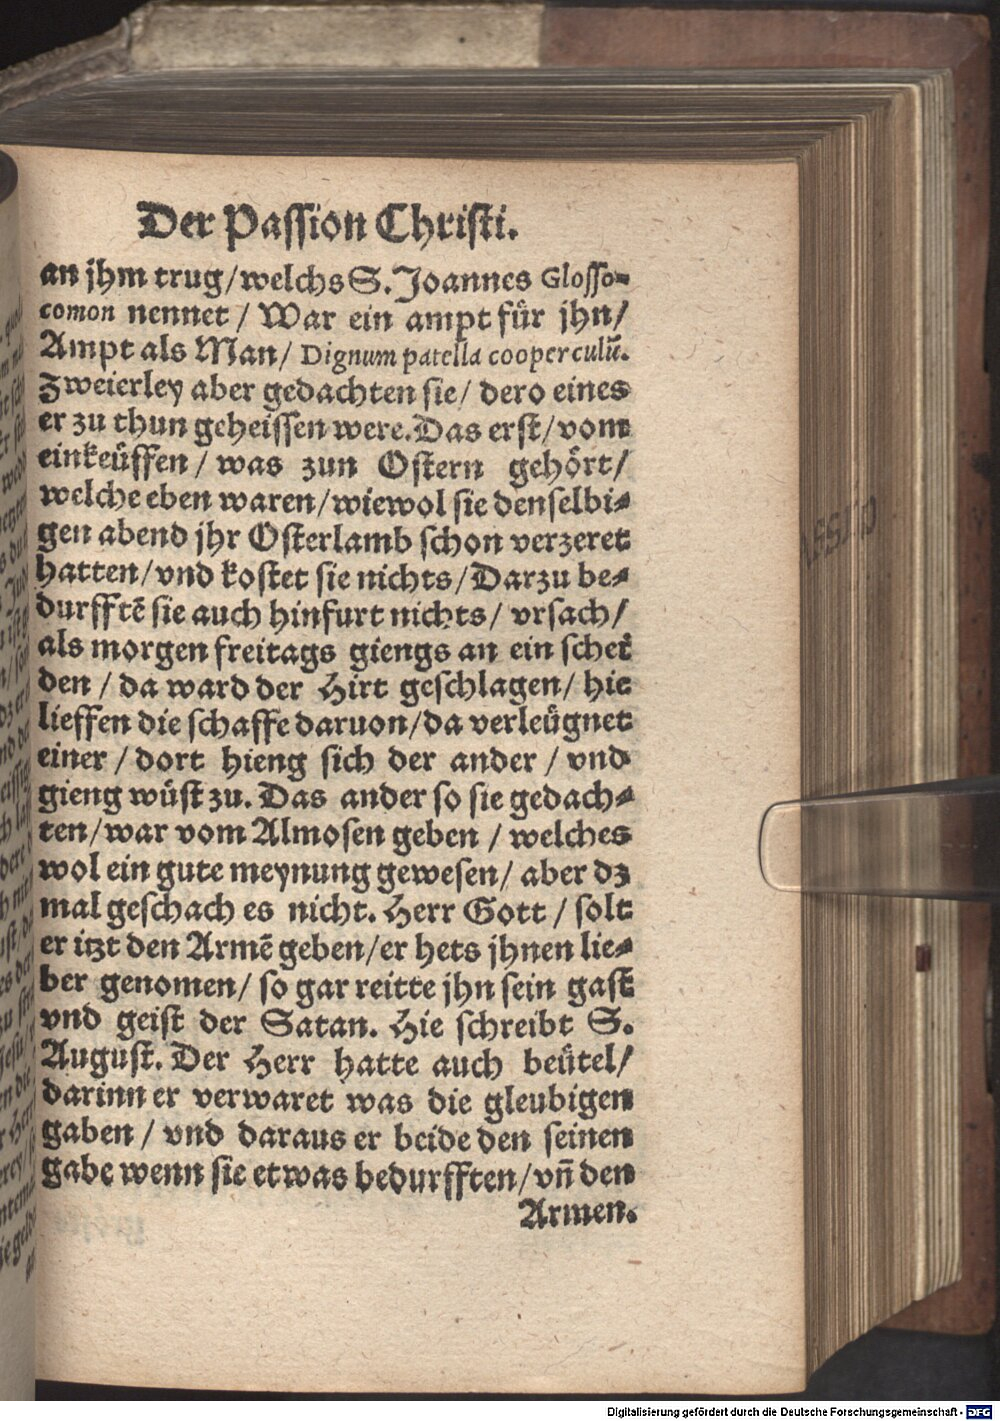 Der Passion Christi.
an jhm trug/welchs S. Joannes Glosso-
comon nennet / War ein ampt fuͤr jhn/
Ampt als Man/ Dignum patella cooperculũ.
Zweierley aber gedachten sie/ dero eines
er zu thun geheissen were. Das erst/vom
einkeuͤffen / was zun Ostern gehoͤrt/
welche eben waren/wiewol sie denselbi-
gen abend jhr Osterlamb schon verzeret
hatten/vnd kostet sie nichts/Darzu be-
durfftẽ sie auch hinfurt nichts/ vrsach/
als morgen freitags giengs an ein schei
den / da ward der Hirt geschlagen/ hie
lieffen die schaffe daruon/da verleuͤgnet
einer / dort hieng sich der ander / vnd
gieng wuͤst zu. Das ander so sie gedach-
ten/war vom Almosen geben / welches
wol ein gute meynung gewesen/ aber dz
mal geschach es nicht. Herr Gott / solt
er itzt den Armẽ geben/er hets jhnen lie-
ber genomen/ so gar reitte jhn sein gast
vnd geist der Satan. Hie schreibt S.
August. Der Herr hatte auch beuͤtel/
darinn er verwaret was die gleubigen
gaben / vnd daraus er beide den seinen
gabe wenn sie etwas bedurfften/vñ den
Armen.
Digitalisierung gefördert durch die Deutsche Forschungsgemeinschaft - DFG